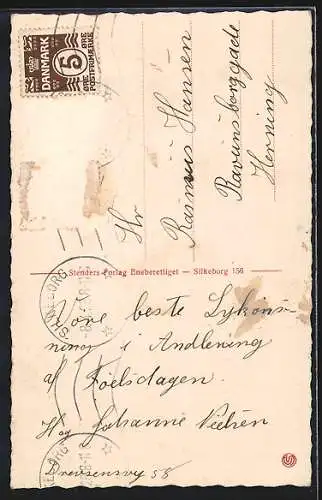 DANMARK
5
ØRE ØRE
POSTFRIMÆRKE
Hr
Rasmus Hansen
Ravnsborggade
Herning
Stenders Forlag Eneberettiget — Silkeborg 156
SILKEBORG
Vore beste Lykøns-
ning i Andlening
af Føelsdagen.
H og Johanne Nielsen
58